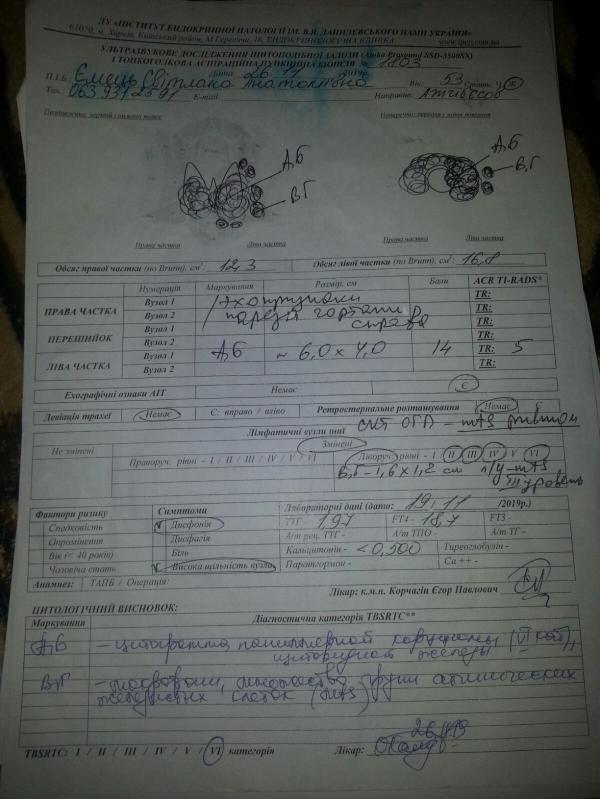 ДУ «ІНСТИТУТ ЕНДОКРИННОЇ ПАТОЛОГІЇ ІМ. В.Я. ДАНИЛЕВСЬКОГО НАМН УКРАЇНИ»
61070, м. Харків, Київський район, ЕНДОКРИНОЛОГІЧНА КЛІНІКА www.ipep.com.ua
УЛЬТРАЗВУКОВЕ ДОСЛІДЖЕННЯ ЩИТОПОДІБНОЇ ЗАЛОЗИ (Aloka Prosound SSD-3500SX)
І ТОНКОГОЛКОВА АСПІРАЦІЙНА ПУНКЦІЙНА БІОПСІЯ № 1803
Дата: 26 11 2019р.
П.І.Б. Ємець Світлана Анатоліївна Вік: 53 Стать: Ч Ж
Тел. E-mail Направив:
А,Б А,Б
В,Г В,Г
Права частка Ліва частка Права частка Ліва частка
Обсяг правої частки (по Brunn), см³: 12,3 Обсяг лівої частки (по Brunn), см³: 16,8
Нумерація Маркування Розмір, см Бали ACR TI-RADS*
ПРАВА ЧАСТКА Вузол 1 TR:
Вузол 2 парез гортани справа TR:
ПЕРЕШИЙОК Вузол 1 TR:
Вузол 2 TR:
ЛІВА ЧАСТКА Вузол 1 А,Б ~ 6,0 х 4,0 14 TR: 5
Вузол 2 TR:
Ехографічні ознаки АІТ Немає Є
Девіація трахеї Немає Є: вправо / вліво Ретростернальне розташування Немає Є
Лімфатичні вузли шиї
Не змінені Змінені
Праворуч: рівні - I / II / III / IV / V / VI Ліворуч: рівні - I / II / III / IV / V / VI
В,Г - 1,6 х 1,2 см л/у - mts
Фактори ризику Симптоми Лабораторні дані (дата: 19 11 /2019р.)
Спадковість Дисфонія ТТГ - 1,97 FT4 - 18,7 FT3 -
Опромінення Дисфагія А/т рец. ТТГ - А/т ТПО - А/т ТГ -
Вік (< 40 років) Біль Кальцитонін - <0,500 Тиреоглобулін -
Чоловіча стать Висока щільність вузла Паратгормон - Ca ++ -
Анамнез: ТАПБ / Операція: Лікар: к.м.н. Корчагін Єгор Павлович
ЦИТОЛОГІЧНИЙ ВИСНОВОК:
Маркування Діагностична категорія TBSRTC**
А,Б - цитограмма папиллярной карциномы (VI кат),
щитовидной железы
В,Г - лимфоциты, множество групп атипических
железистых клеток (mts)
TBSRTC: I / II / III / IV / V / VI категорія Лікар: